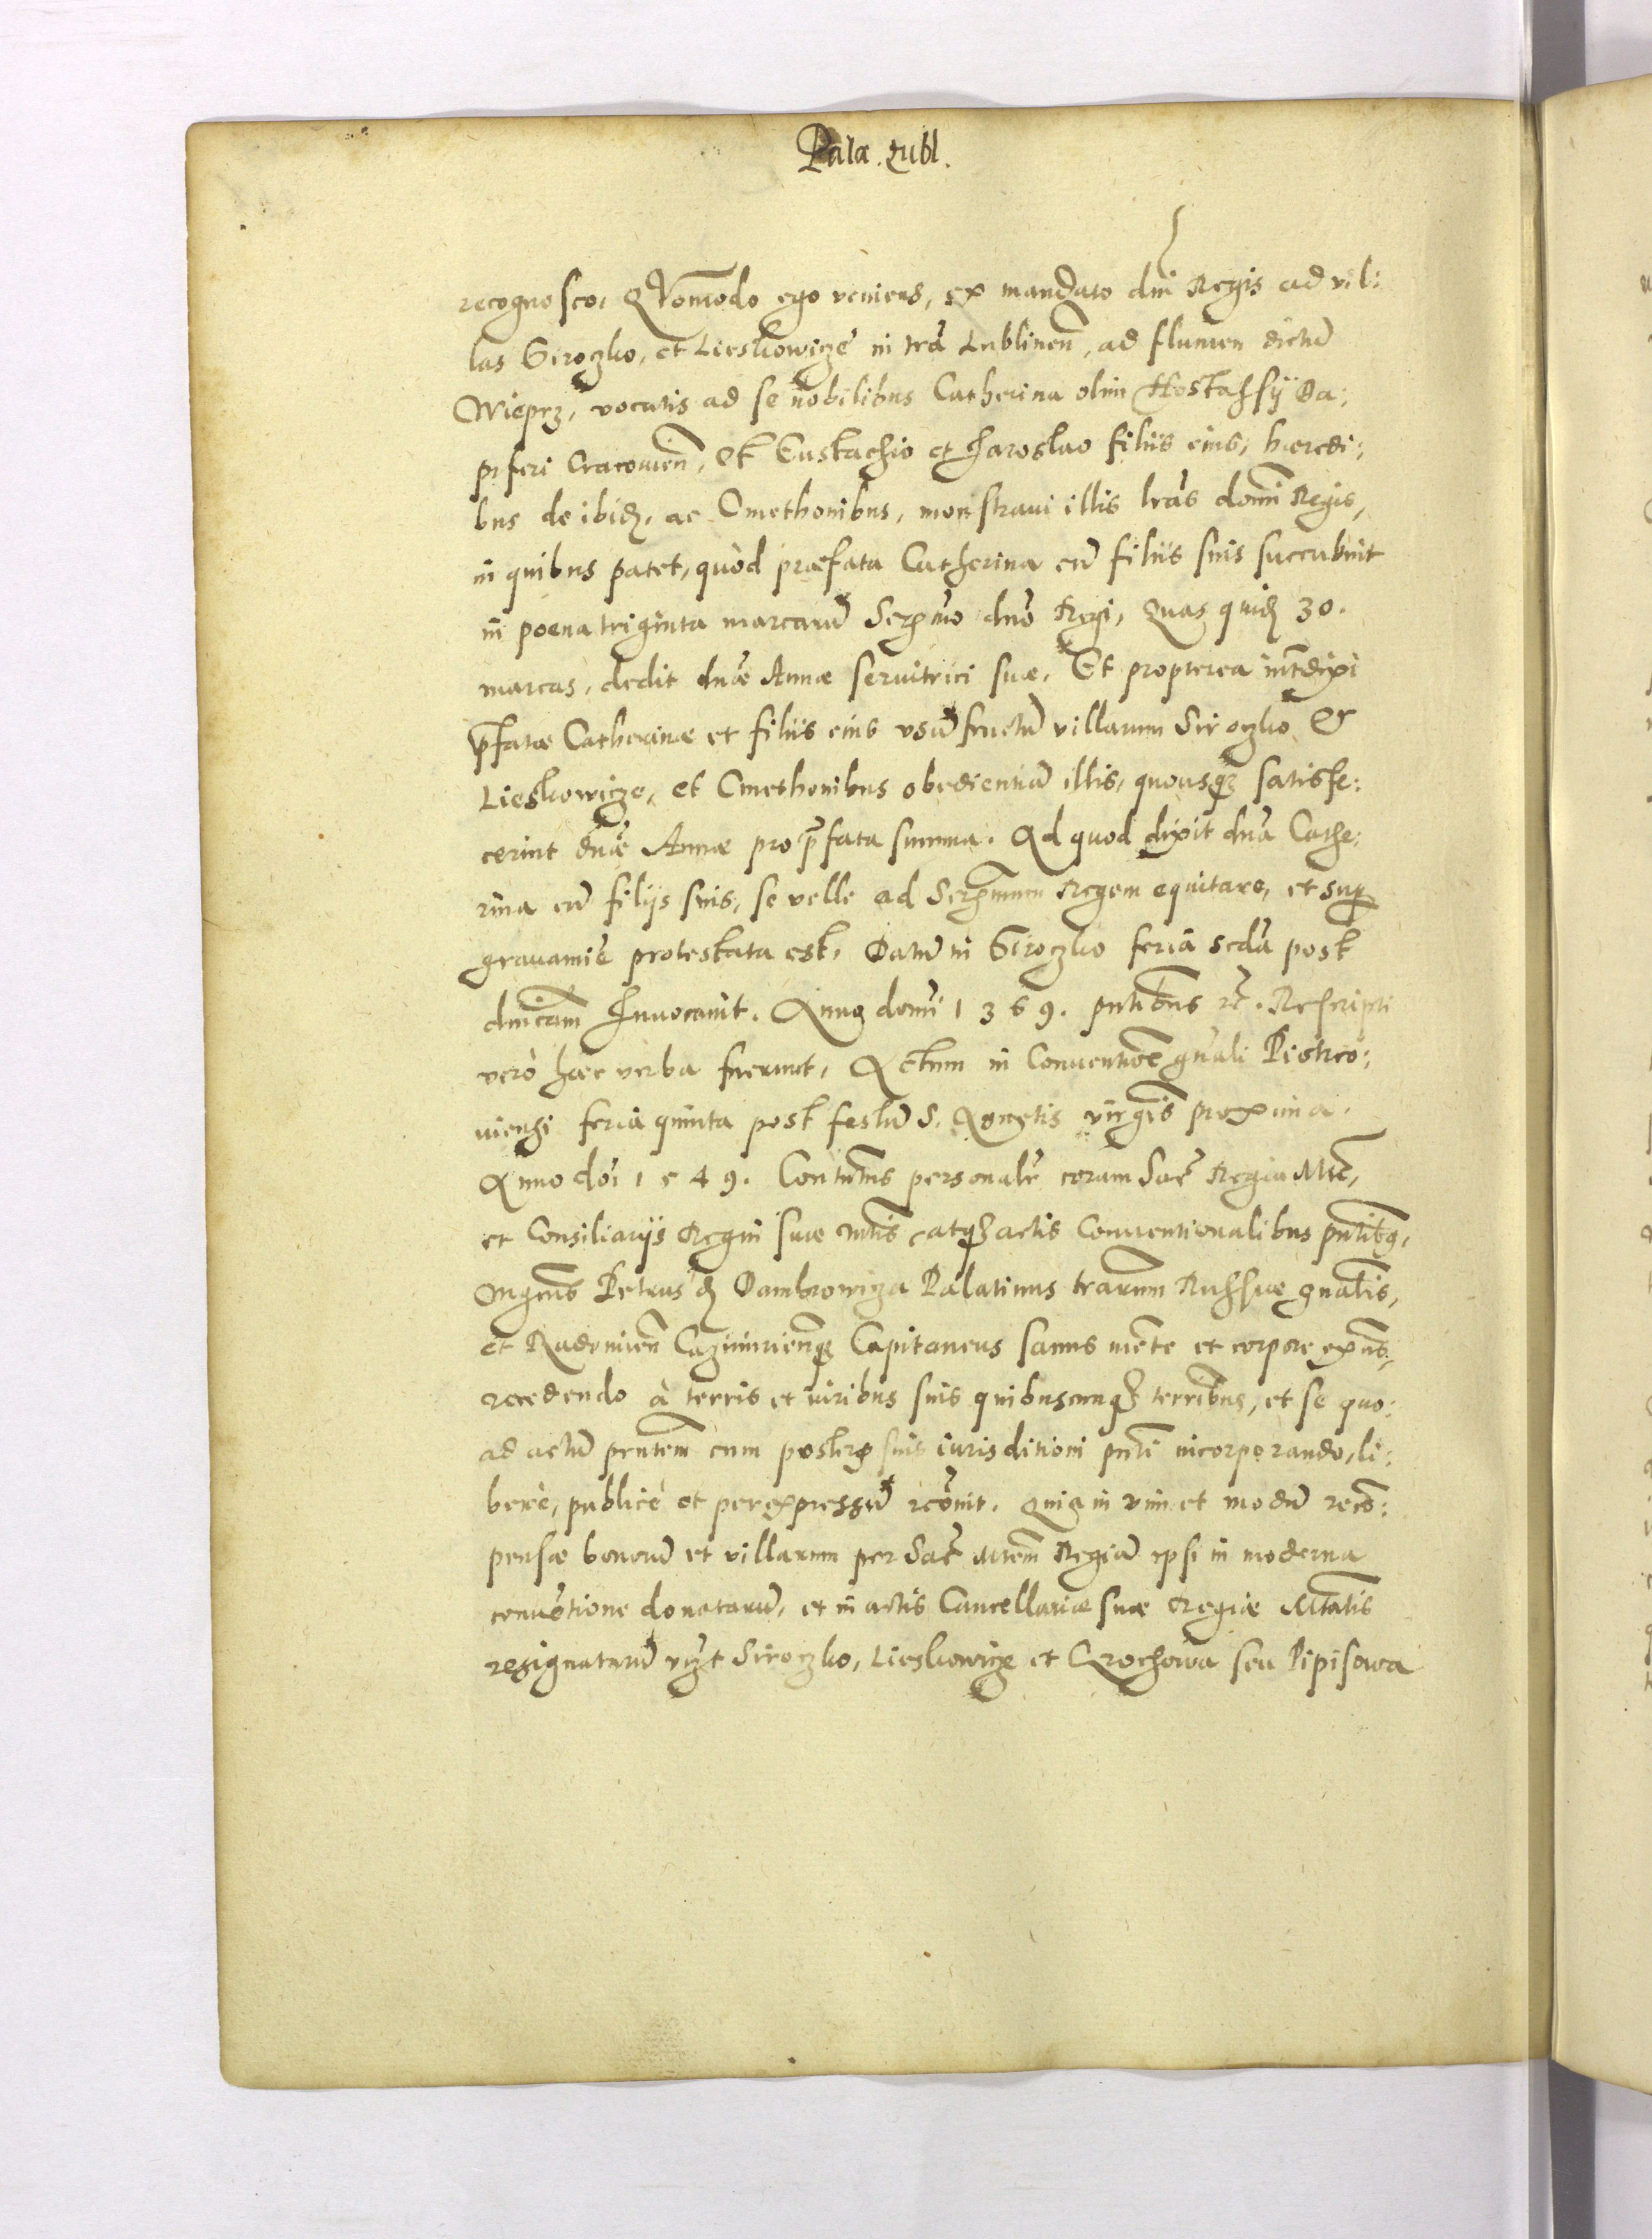 Pala. Lubl.
recognosco. Quomodo ego veniens, ex mandato dni Regis ad vil:
las Siroczko, et Lieskowicze in tra Lublinen, ad flumen dictu
Wieprz, vocatis ad se nobilibus Catherina olim Hostafsy Da:
piferi Cracouien, et Eustachio et Jaroslao filiis eius, haeredi:
bus de ibid, ac Cmethonibus, monstraui illis lras domi Regis,
in quibus patet, quòd praefata Catherina cu filiis suis succubuit
in poena triginta marcaru Sermo dno Regi, Quas quid 30.
marcas, dedit dnae Annae seruitrici suae. Et propterea intdixi
pfatae Catherinae et filiis eius vsufructu villarum Siroczko et
Lieskowicze, et Cmethonibus obedientia illis, quousq satisfe:
cerint dnae Annae pro pfata summa. Ad quod dixit dna Cathe:
rina cu filijs suis, se velle ad Sermum Regem equitare, et sup
grauamie protestata est. Datu in Siroczko feria scda post
dnicam Inuocauit. Anno domi 1369. pntibus etc. Rescripti
verò haec verba fuerunt. Actum in Conuentioe gnali Piotrco:
uiensi feria quinta post festu S. Agnetis virginis proxima.
Anno doi 1549. Contutus personalr coram Sac Regia Mte,
et Consiliarijs Regni suae Mtis, atq actis Conuentionalibus pntibq,
Mgcus Petrus d Dambrowicza Palatinus trarum Russiae gnalis,
et Radomien Cazimirienq Capitaneus sanus mente et corpore exns,
recedendo à terris et iuribus suis quibuscunq terribus, et se quo:
ad actu pntem cum posteris suis iurisditioni pnti incorporando, li:
berè, publicè et per expressu recouit. Quia in vim et modu reco:
pensae bonoru et villarum per Sac Mtem Regia ipsi in moderna
conuetione donataru, et in actis Cancellariae suae Regiae Mtatis
resignataru vizt Siroczko, Lieskowicze et Grochowa seu Pipisowa